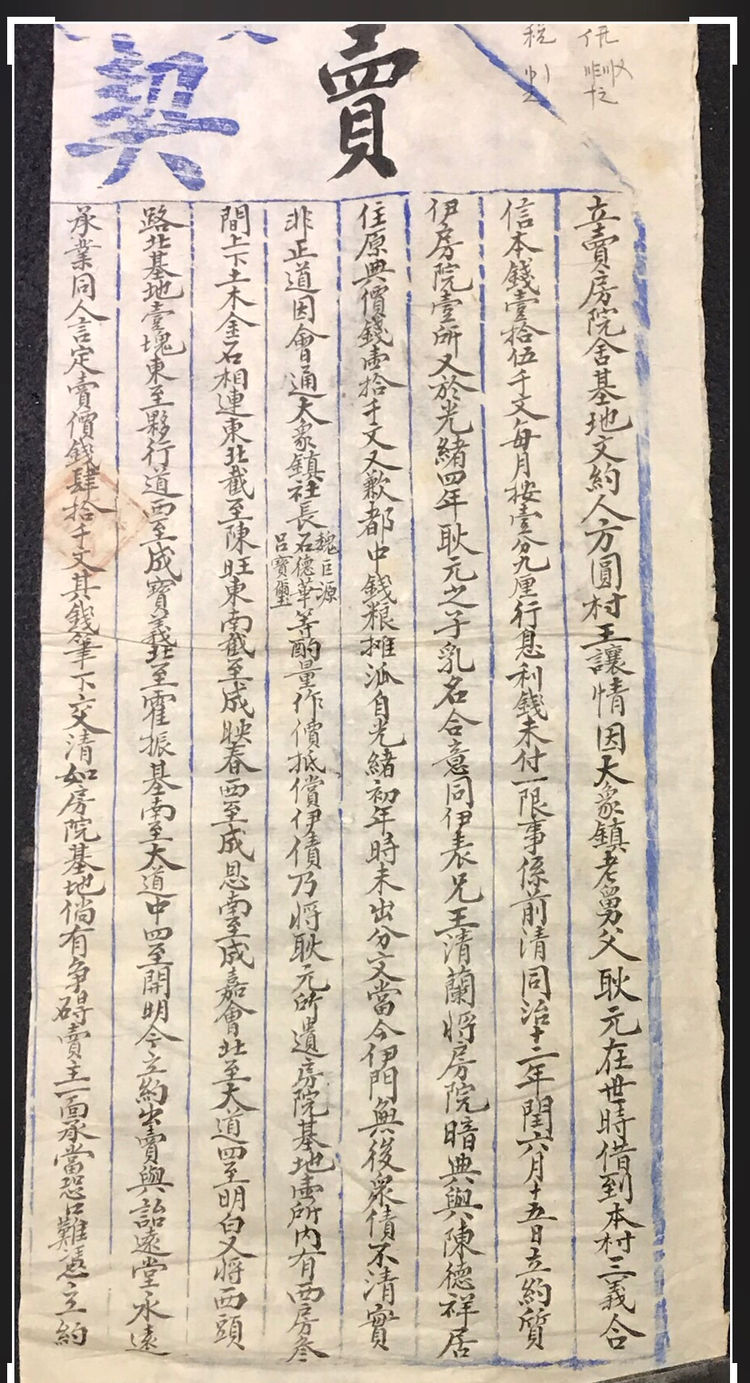 賣契
立賣房院舍基地文約人方圓村王讓情因大象鎮老舅父耿元在世時借到本村三義合
信本錢壹拾伍千文每月按壹分九厘行息利錢未付一限事係前清同治十二年閏六月十五日立約質
伊房院壹所又於光緒四年耿元之子乳名合意同伊表兄王清蘭將房院暗典與陳德祥居
住原典價錢壹拾千文又歉都中錢粮摊派自光緒初年時未出分文當今伊門無後眾債不清實
非正道因會通大象鎮社長魏巨源石德華呂寶璽等酌量作價抵償伊債乃將耿元所遺房院基地壹所內有西房叁
間上下土木金石相連東北截至陳旺東南截至成映春西至成恩南至成嘉會北至大道四至明白又將西頭
路北基地壹塊東至夥行道西至成寶義北至霍振基南至大道中四至開明今立約出賣與詒遠堂永遠
承業同人言定賣價錢肆拾千文其錢筆下交清如房院基地倘有争碍賣主一面承當恐口難憑立約